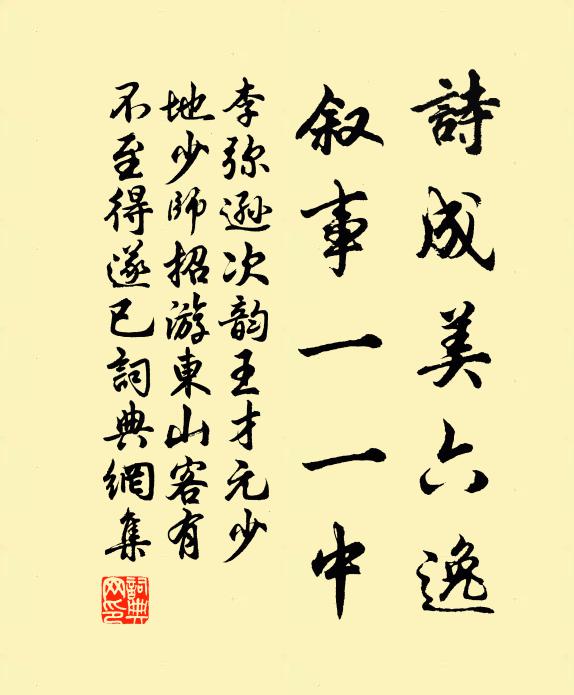 詩成美六逸
叙事一一中
李弥遜次韵王才元少
地少師招游東山客有
不至得遂已詞典網集
詞典
网印